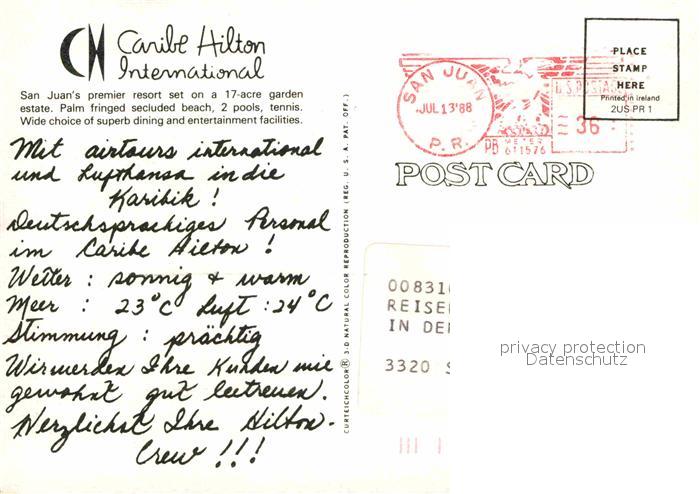 Caribe Hilton
International
San Juan's premier resort set on a 17-acre garden
estate. Palm fringed secluded beach, 2 pools, tennis.
Wide choice of superb dining and entertainment facilities.
Mit airtours international
und Lufthansa in die
Karibik !
Deutschsprachiges Personal
im Caribe Hilton !
Wetter : sonnig + warm
Meer : 23°C Luft : 24°C
Stimmung : prächtig
Wir werden Ihre Kunden wie
gewohnt gut betreuen.
Herzlichst Ihre Hilton-
Crew !!!
CURTEICHCOLOR® 3-D NATURAL COLOR REPRODUCTION (REG. U.S.A. PAT. OFF.)
SAN JUAN
JUL 13'88
P.R.
U.S. POSTAGE
36
PB METER
611576
PLACE
STAMP
HERE
Printed in Ireland
2US-PR 1
POST CARD
00831
REISE
IN DE
3320 S
privacy protection
Datenschutz